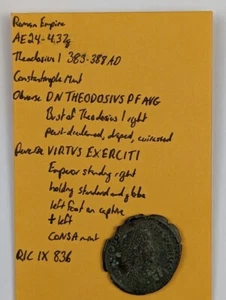 Roman Empire
AE24-4.37g
Theodosius I 383-388 AD
Constantinople Mint
Obverse DN THEODOSIVS PF AVG
Bust of Theodosius I right
pearl-diademed, draped, cuirassed
Reverse VIRTVS EXERCITI
Emperor standing right
holding standard and globe
left foot on captive
+ left
CONSA mint
RIC IX 83b